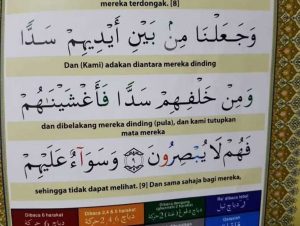 mereka terdongak. [8]
وَجَعَلْنَا مِنۢ بَيْنِ أَيْدِيهِمْ سَدًّا
Dan (Kami) adakan diantara mereka dinding
وَمِنْ خَلْفِهِمْ سَدًّا فَأَغْشَيْنَٰهُمْ
dan dibelakang mereka dinding (pula), dan kami tutupkan
mata mereka
فَهُمْ لَا يُبْصِرُونَ ٩ وَسَوَآءٌ عَلَيْهِمْ
sehingga tidak dapat melihat. [9] Dan sama sahaja bagi mereka,
Dibaca 6 harakat
Dibaca 2,4 & 6 harakat